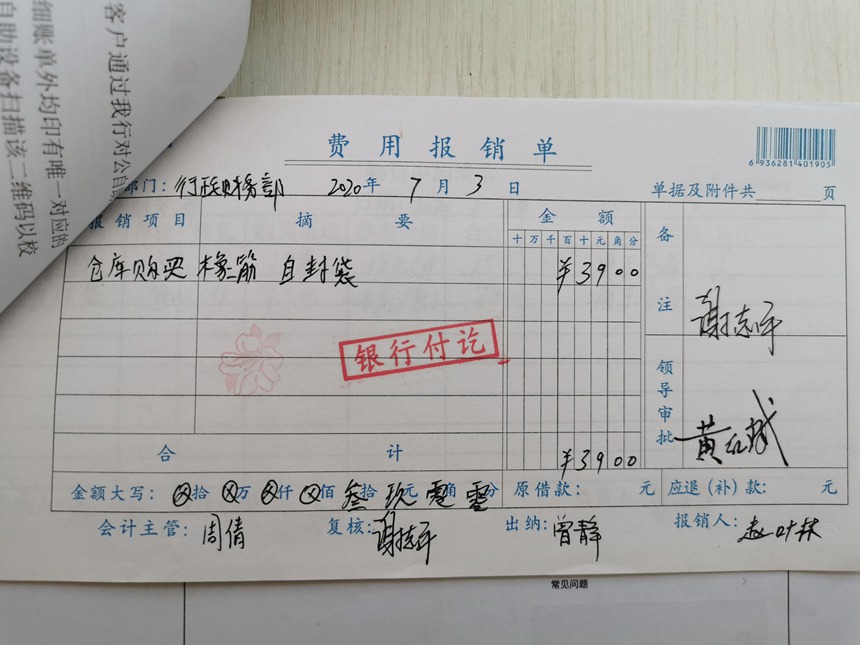 客户通过我行对公自助
细账单外均印有唯一对应的
自助设备扫描该二维码以校
费用报销单
6 936281 401905
部门：行政财务部 2020年 7月 3日 单据及附件共 页
报销项目 摘要 金额 备注
十万千百十元角分
仓库购买 橡筋 自封袋 ¥3900
谢志平
银行付讫
领导审批
合计 ¥3900
金额大写： ⊗拾 ⊗万 ⊗仟 ⊗佰 叁拾 玖元 零角 零分 原借款： 元 应退（补）款： 元
会计主管：周倩 复核：谢志平 出纳：曾静 报销人：赵叶林
常见问题